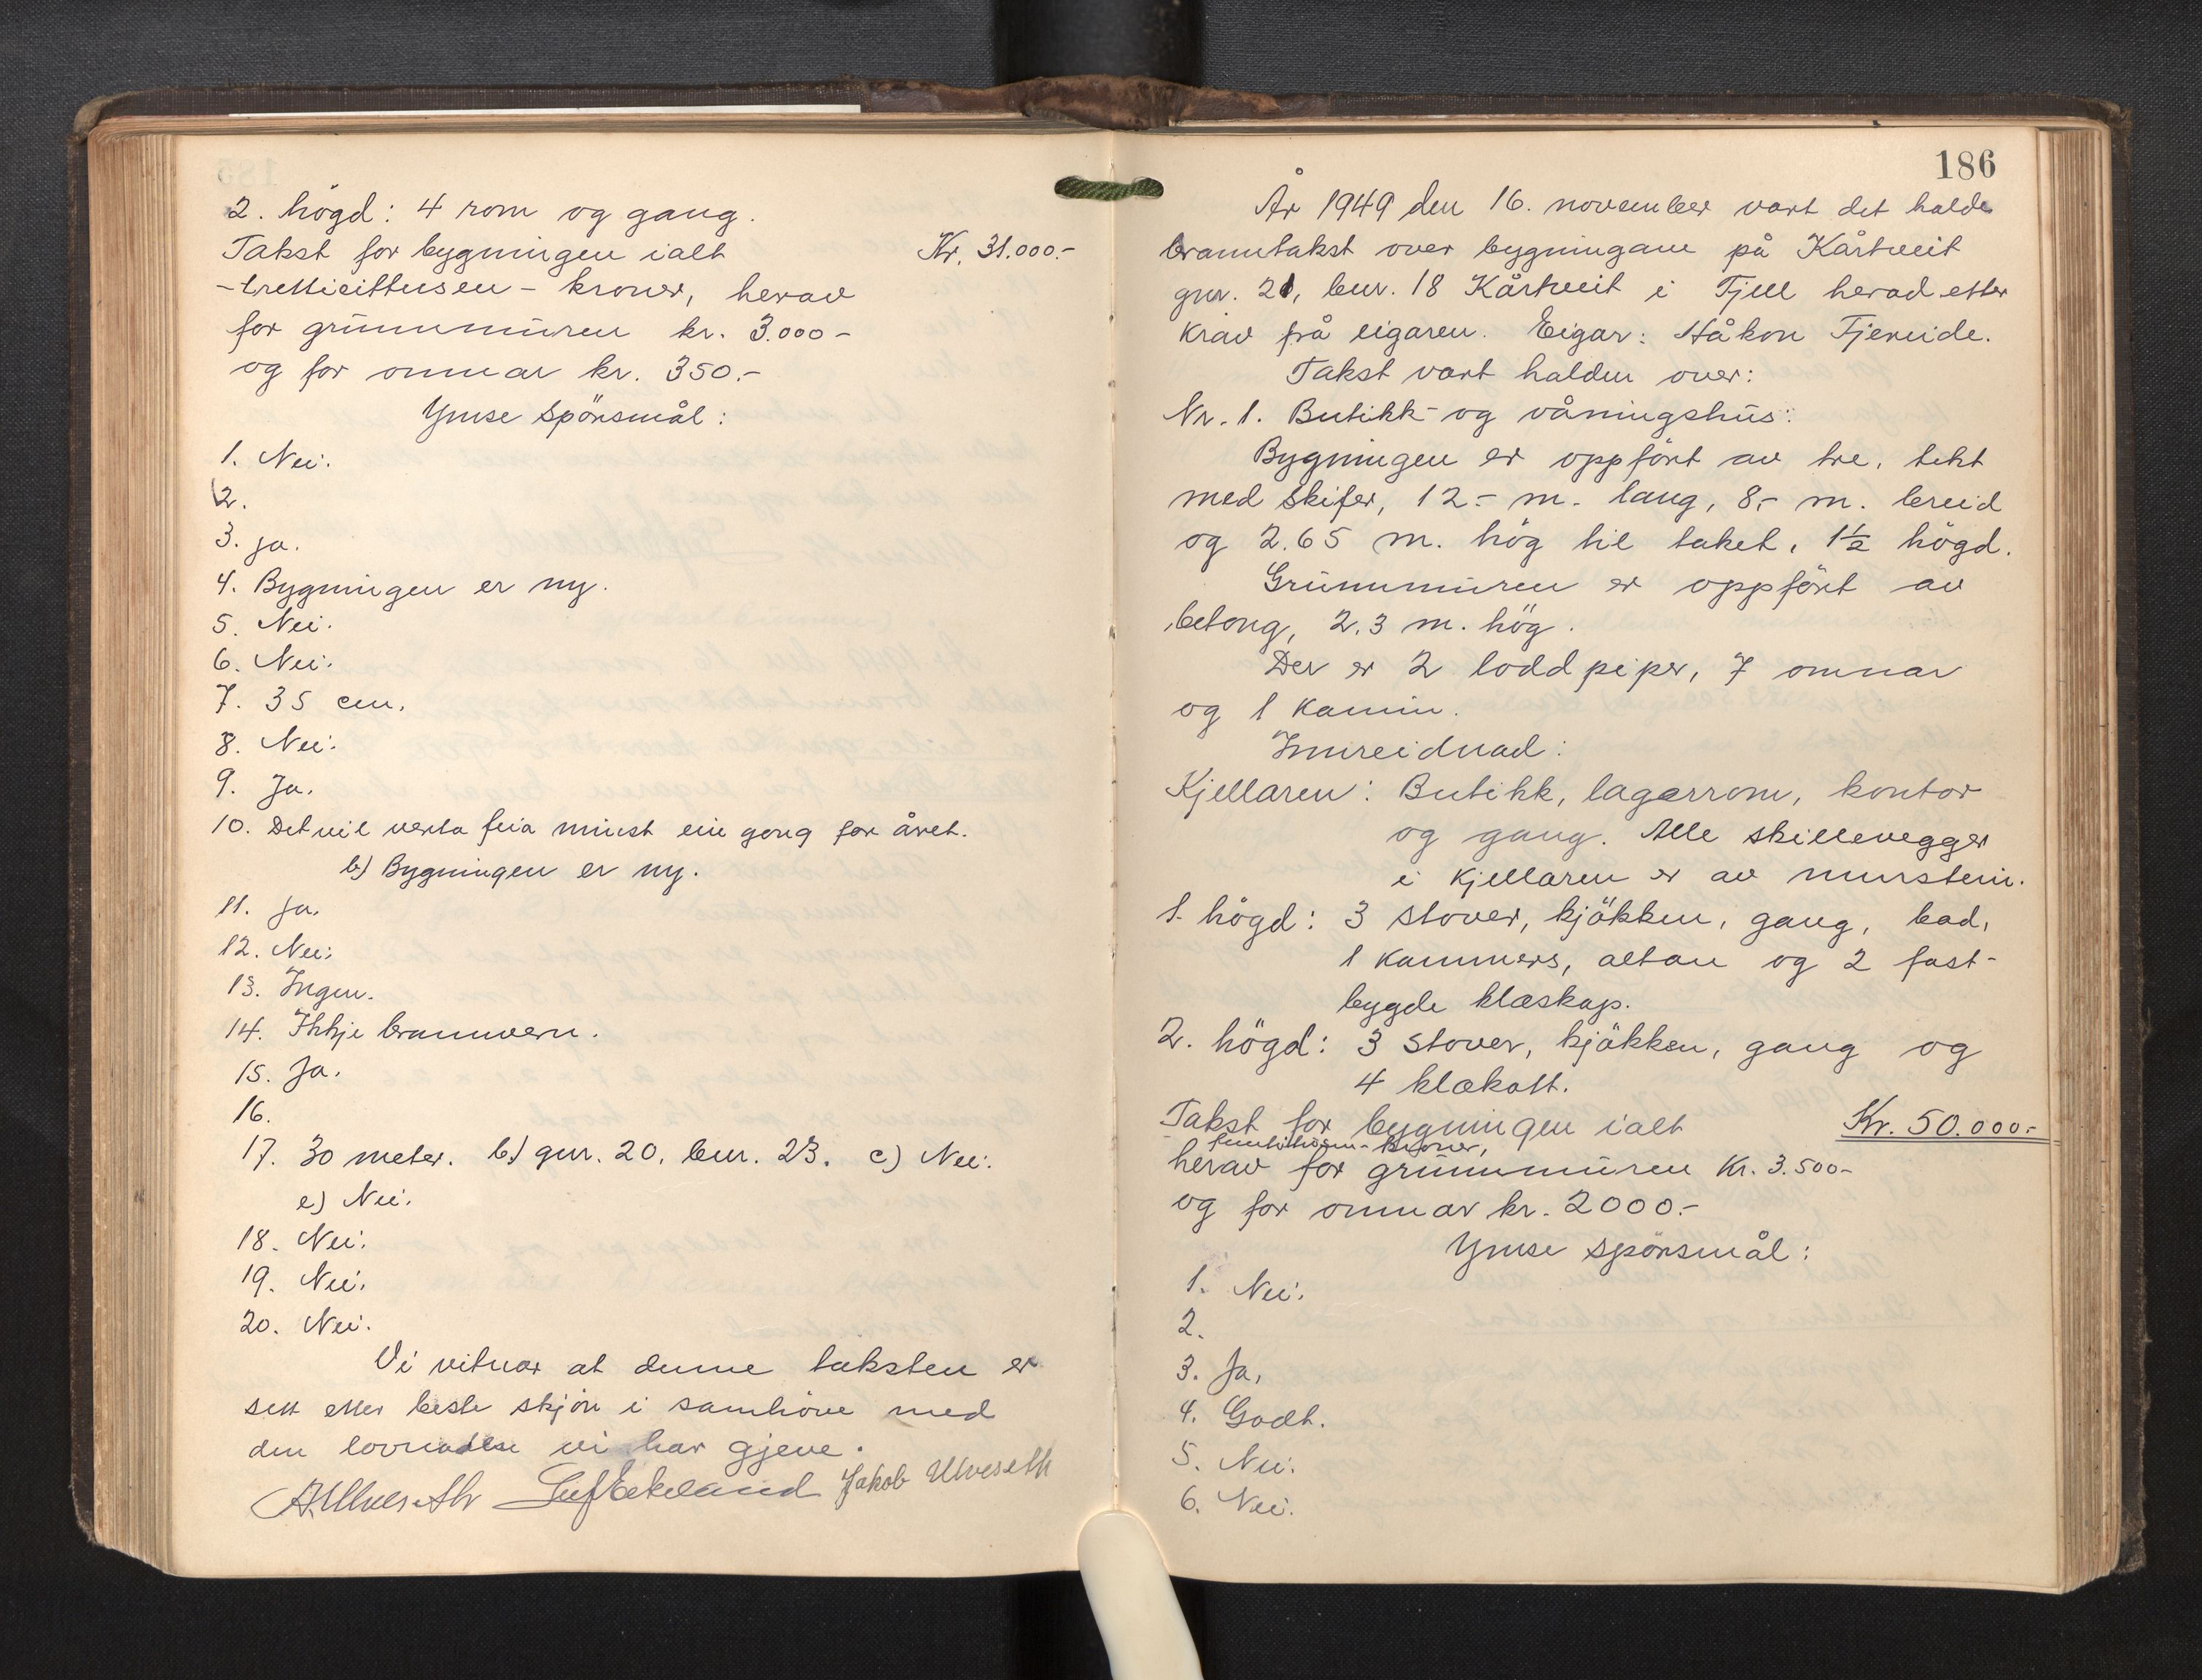 2. högd: 4 rom og gang.
Takst for bygningen ialt Kr. 31.000.-
-trettieittusen- kroner, herav
for grunnmuren kr. 3.000-
og for omnar kr. 350.-
Ymse spörsmål:
1. Nei.
2.
3. ja.
4. Bygningen er ny.
5. Nei.
6. Nei.
7. 35 cm.
8. Nei.
9. Ja.
10. Det vil verta feia minst ein gong for året.
b) Bygningen er ny.
11. Ja.
12. Nei.
13. Ingen.
14. Ikkje brannvern.
15. Ja.
16.
17. 30 meter. b) gnr. 20, bnr. 23. c) Nei.
e) Nei.
18. Nei.
19. Nei.
20. Nei.
Vi vitnar at denne taksten er
sett etter beste skjön i samhöve med
den lovnaden vi har gjeve.
A. Ulveseth Leif Ekeland Jakob Ulveseth
186
År 1949 den 16. november vart det halde
branntakst over bygningane på Kårtveit
gnr. 21, bnr. 18 Kårtveit i Fjell herad etter
krav frå eigaren. Eigar: Håkon Tjeneide.
Takst vart halden over:
Nr. 1. Butikk- og våningshus:
Bygningen er oppfört av tre, tekt
med skifer, 12.- m. lang, 8,- m. breid
og 2.65 m. hög til taket, 1½ högd.
Grunnmuren er oppfört av
betong, 2.3 m. hög.
Der er 2 loddpiper, 7 omnar
og 1 kamin.
Innreidnad:
Kjellaren: Butikk, lagerrom, kontor
og gang. Alle skillevegger
i kjellaren er av murstein.
1. högd: 3 stover, kjökken, gang, bad,
1 kammers, altan og 2 fast-
bygde klæskap.
2. högd: 3 stover, kjökken, gang og
4 klækott.
Takst for bygningen ialt Kr. 50.000.-
-femtitusen- kroner,
herav for grunnmuren Kr. 3.500-
og for omnar kr. 2000.-
Ymse spörsmål:
1. Nei.
2.
3. Ja,
4. Godt.
5. Nei.
6. Nei.